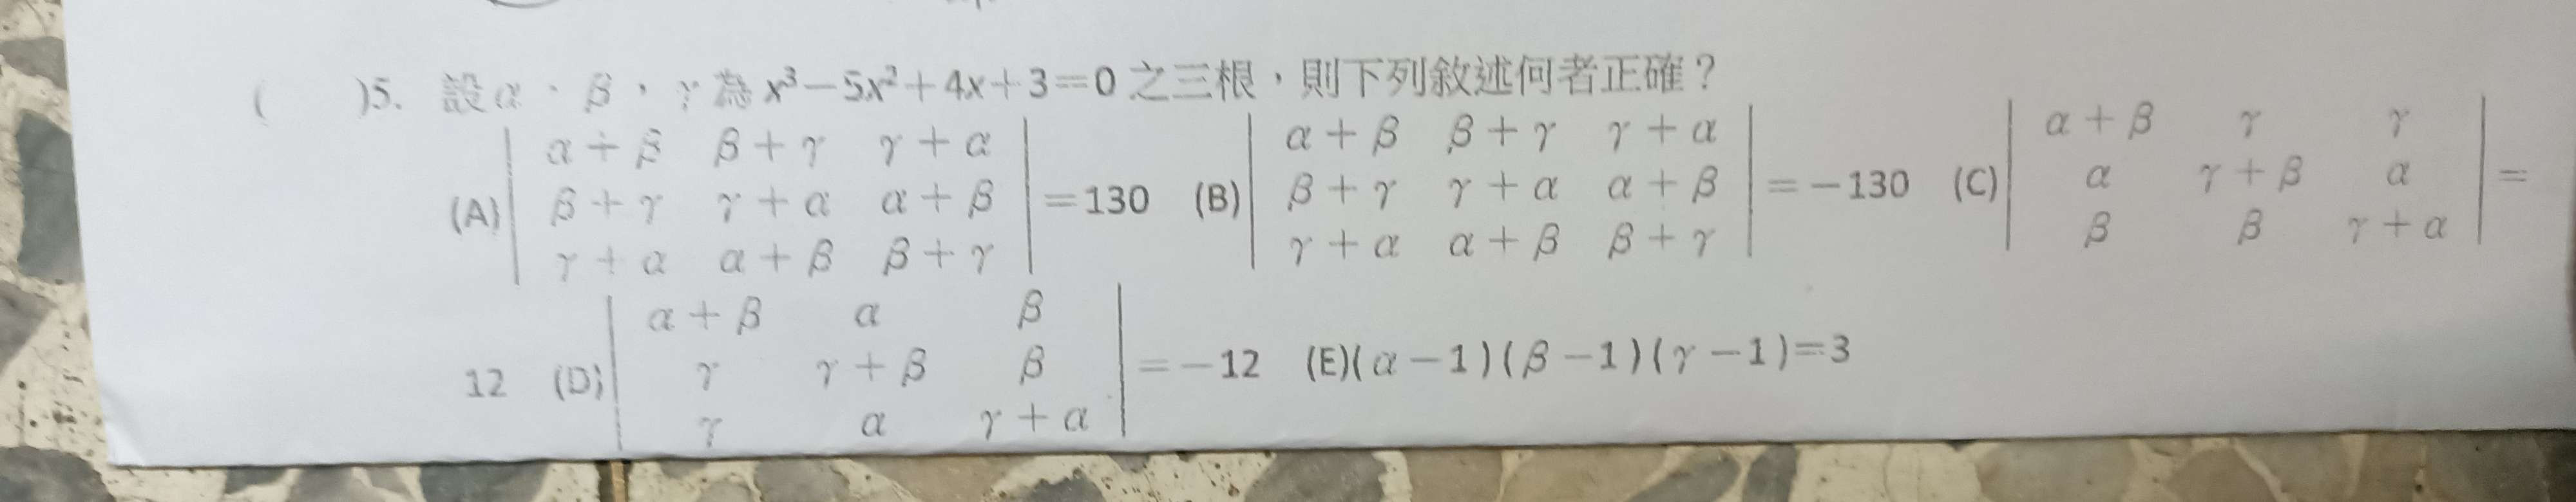 ( )5. 設α、β、γ為 x³−5x²+4x+3=0 之三根，則下列敘述何者正確？
(A)| α+β β+γ γ+α ; β+γ γ+α α+β ; γ+α α+β β+γ |=130 (B)| α+β β+γ γ+α ; β+γ γ+α α+β ; γ+α α+β β+γ |=−130 (C)| α+β γ γ ; α γ+β α ; β β γ+α |=
12 (D)| α+β α β ; γ γ+β β ; γ α γ+α |=−12 (E)(α−1)(β−1)(γ−1)=3